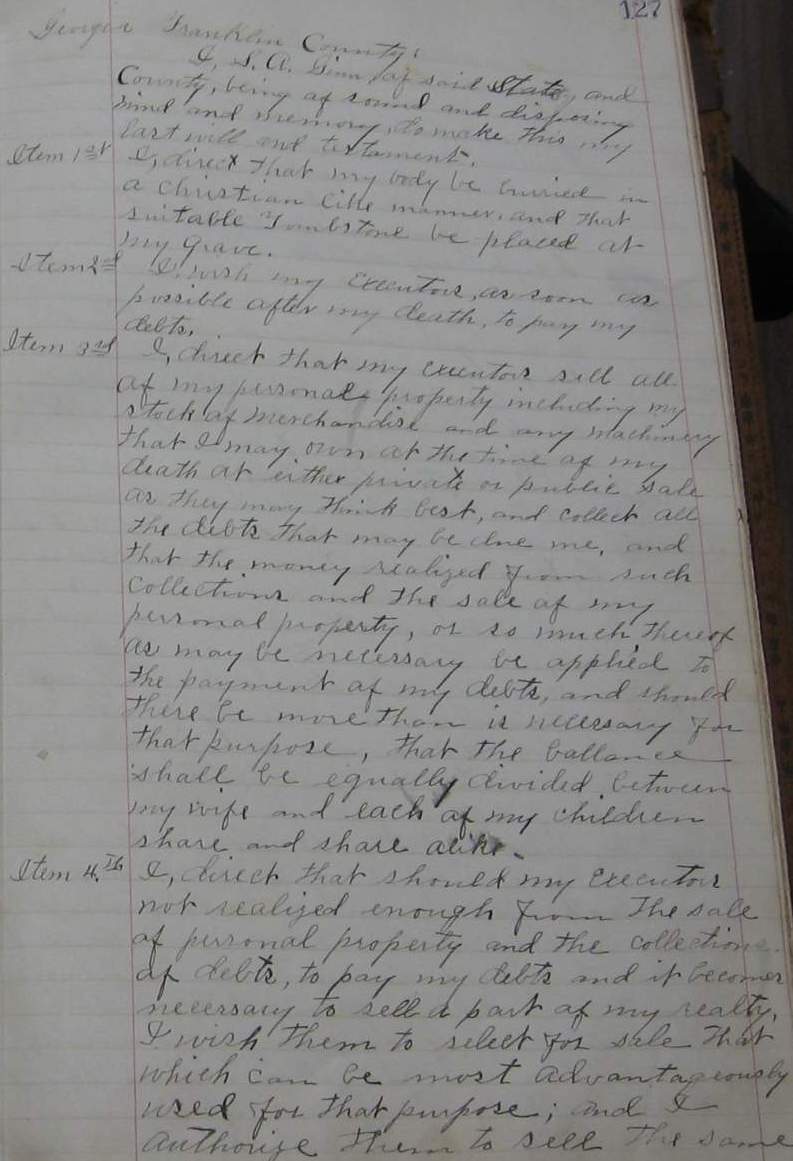 127
Georgia Franklin County;
I, S. A. Ginn, of said State, and
County, being of sound and disposing
mind and memory, do make this my
last will and testament.
Item 1st I, direct that my body be burried in
a Christian like manner, and that
suitable Tombstone be placed at
my grave.
Item 2nd I wish my Executors, as soon as
possible after my death, to pay my
debts.
Item 3rd I, direct that my executors sell all
of my personal property including my
stock of Merchandise and any machinery
that I may own at the time of my
death at either private or public sale
as they may think best, and collect all
the debts that may be due me, and
that the money realized from such
collections and the sale of my
personal property, or so much thereof
as may be necessary be applied to
the payment of my debts, and should
there be more than is necessary for
that purpose, that the ballance
shall be equally divided between
my wife and each of my children
share and share alike.
Item 4.th I, direct that should my Executors
not realized enough from the sale
of personal property and the collections
of debts, to pay my debts and it becomes
necessary to sell a part of my realty,
I wish them to select for sale that
which can be most advantageously
used for that purpose; and I
authorize them to sell the same